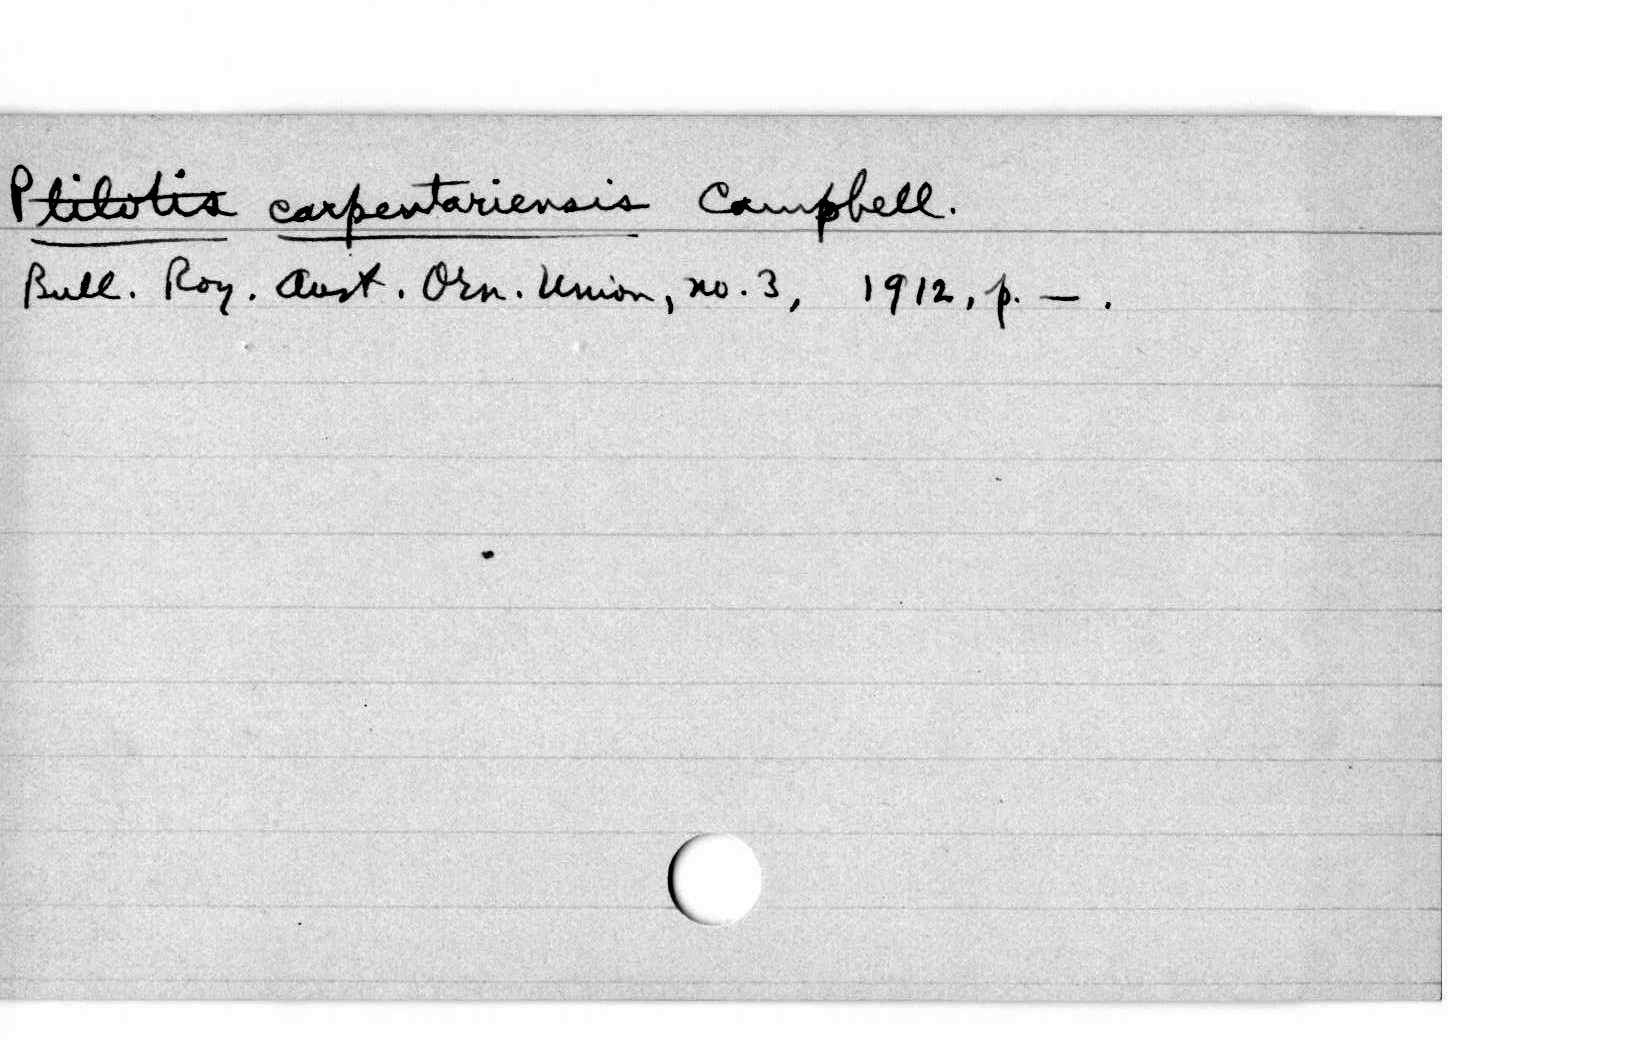 Ptilotis carpentariensis Campbell.
Bull. Roy. Aust. Orn. Union, no. 3, 1912, p. — .